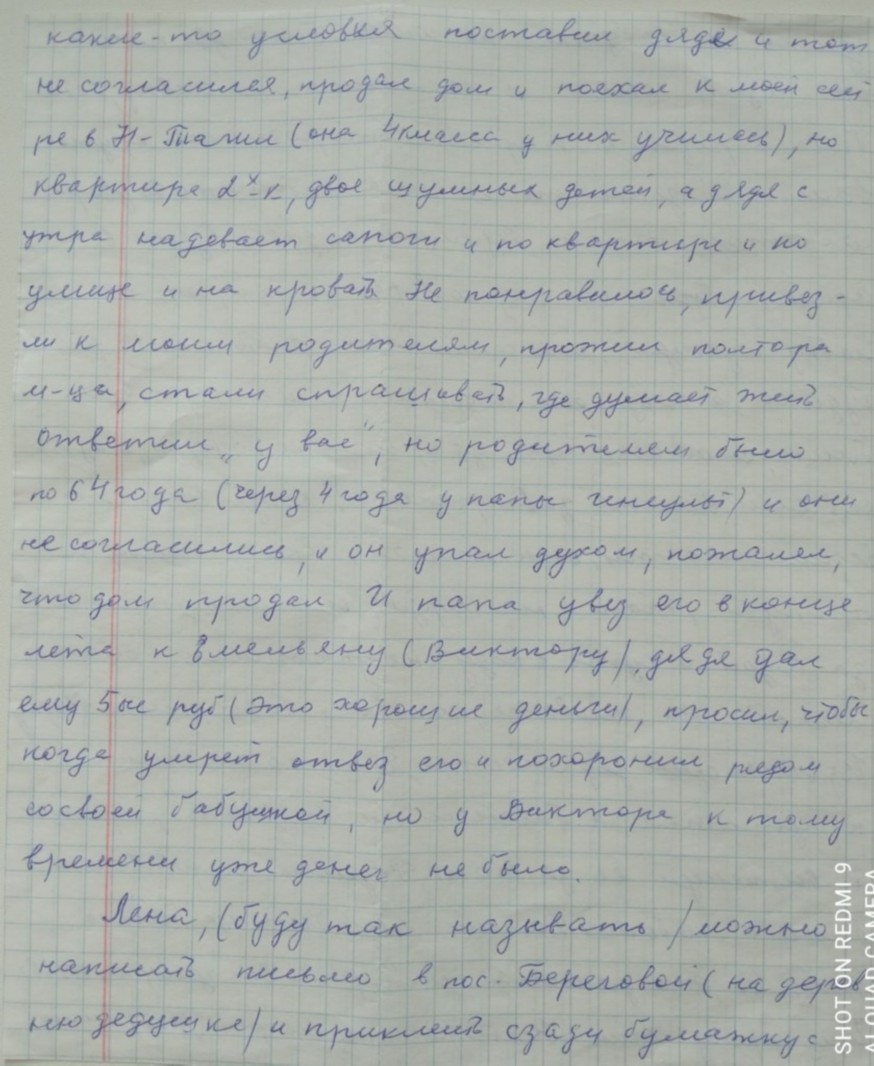 какие-то условия поставил дяде и тот
не согласился, продал дом и поехал к моей сест
ре в Н-Тагил (она 4 класса у них училась), но
квартира 2х-к, двое шумных детей, а дядя с
утра надевает сапоги и по квартире и по
улице и на кровать Не понравилось, привез-
ли к моим родителям, прожил полтора
м-ца, стали спрашивать, где думает жить
ответил „у вас", но родителям было
по 64 года (через 4 года у папы инсульт) и они
не согласились, и он упал духом, пожалел,
что дом продал И папа увез его в конце
лета к Емельяну (Виктору), дядя дал
ему 5 тыс руб (это хорошие деньги), просил, чтобы
когда умрет отвез его и похоронил рядом
со своей бабушкой, но у Виктора к тому
времени уже денег не было.
Лена, (буду так называть) можно
написать письмо в пос. Береговой (на дерев
ню дедушке) и приклеить сзади бумажку с
SHOT ON REDMI 9
AI QUAD CAMERA